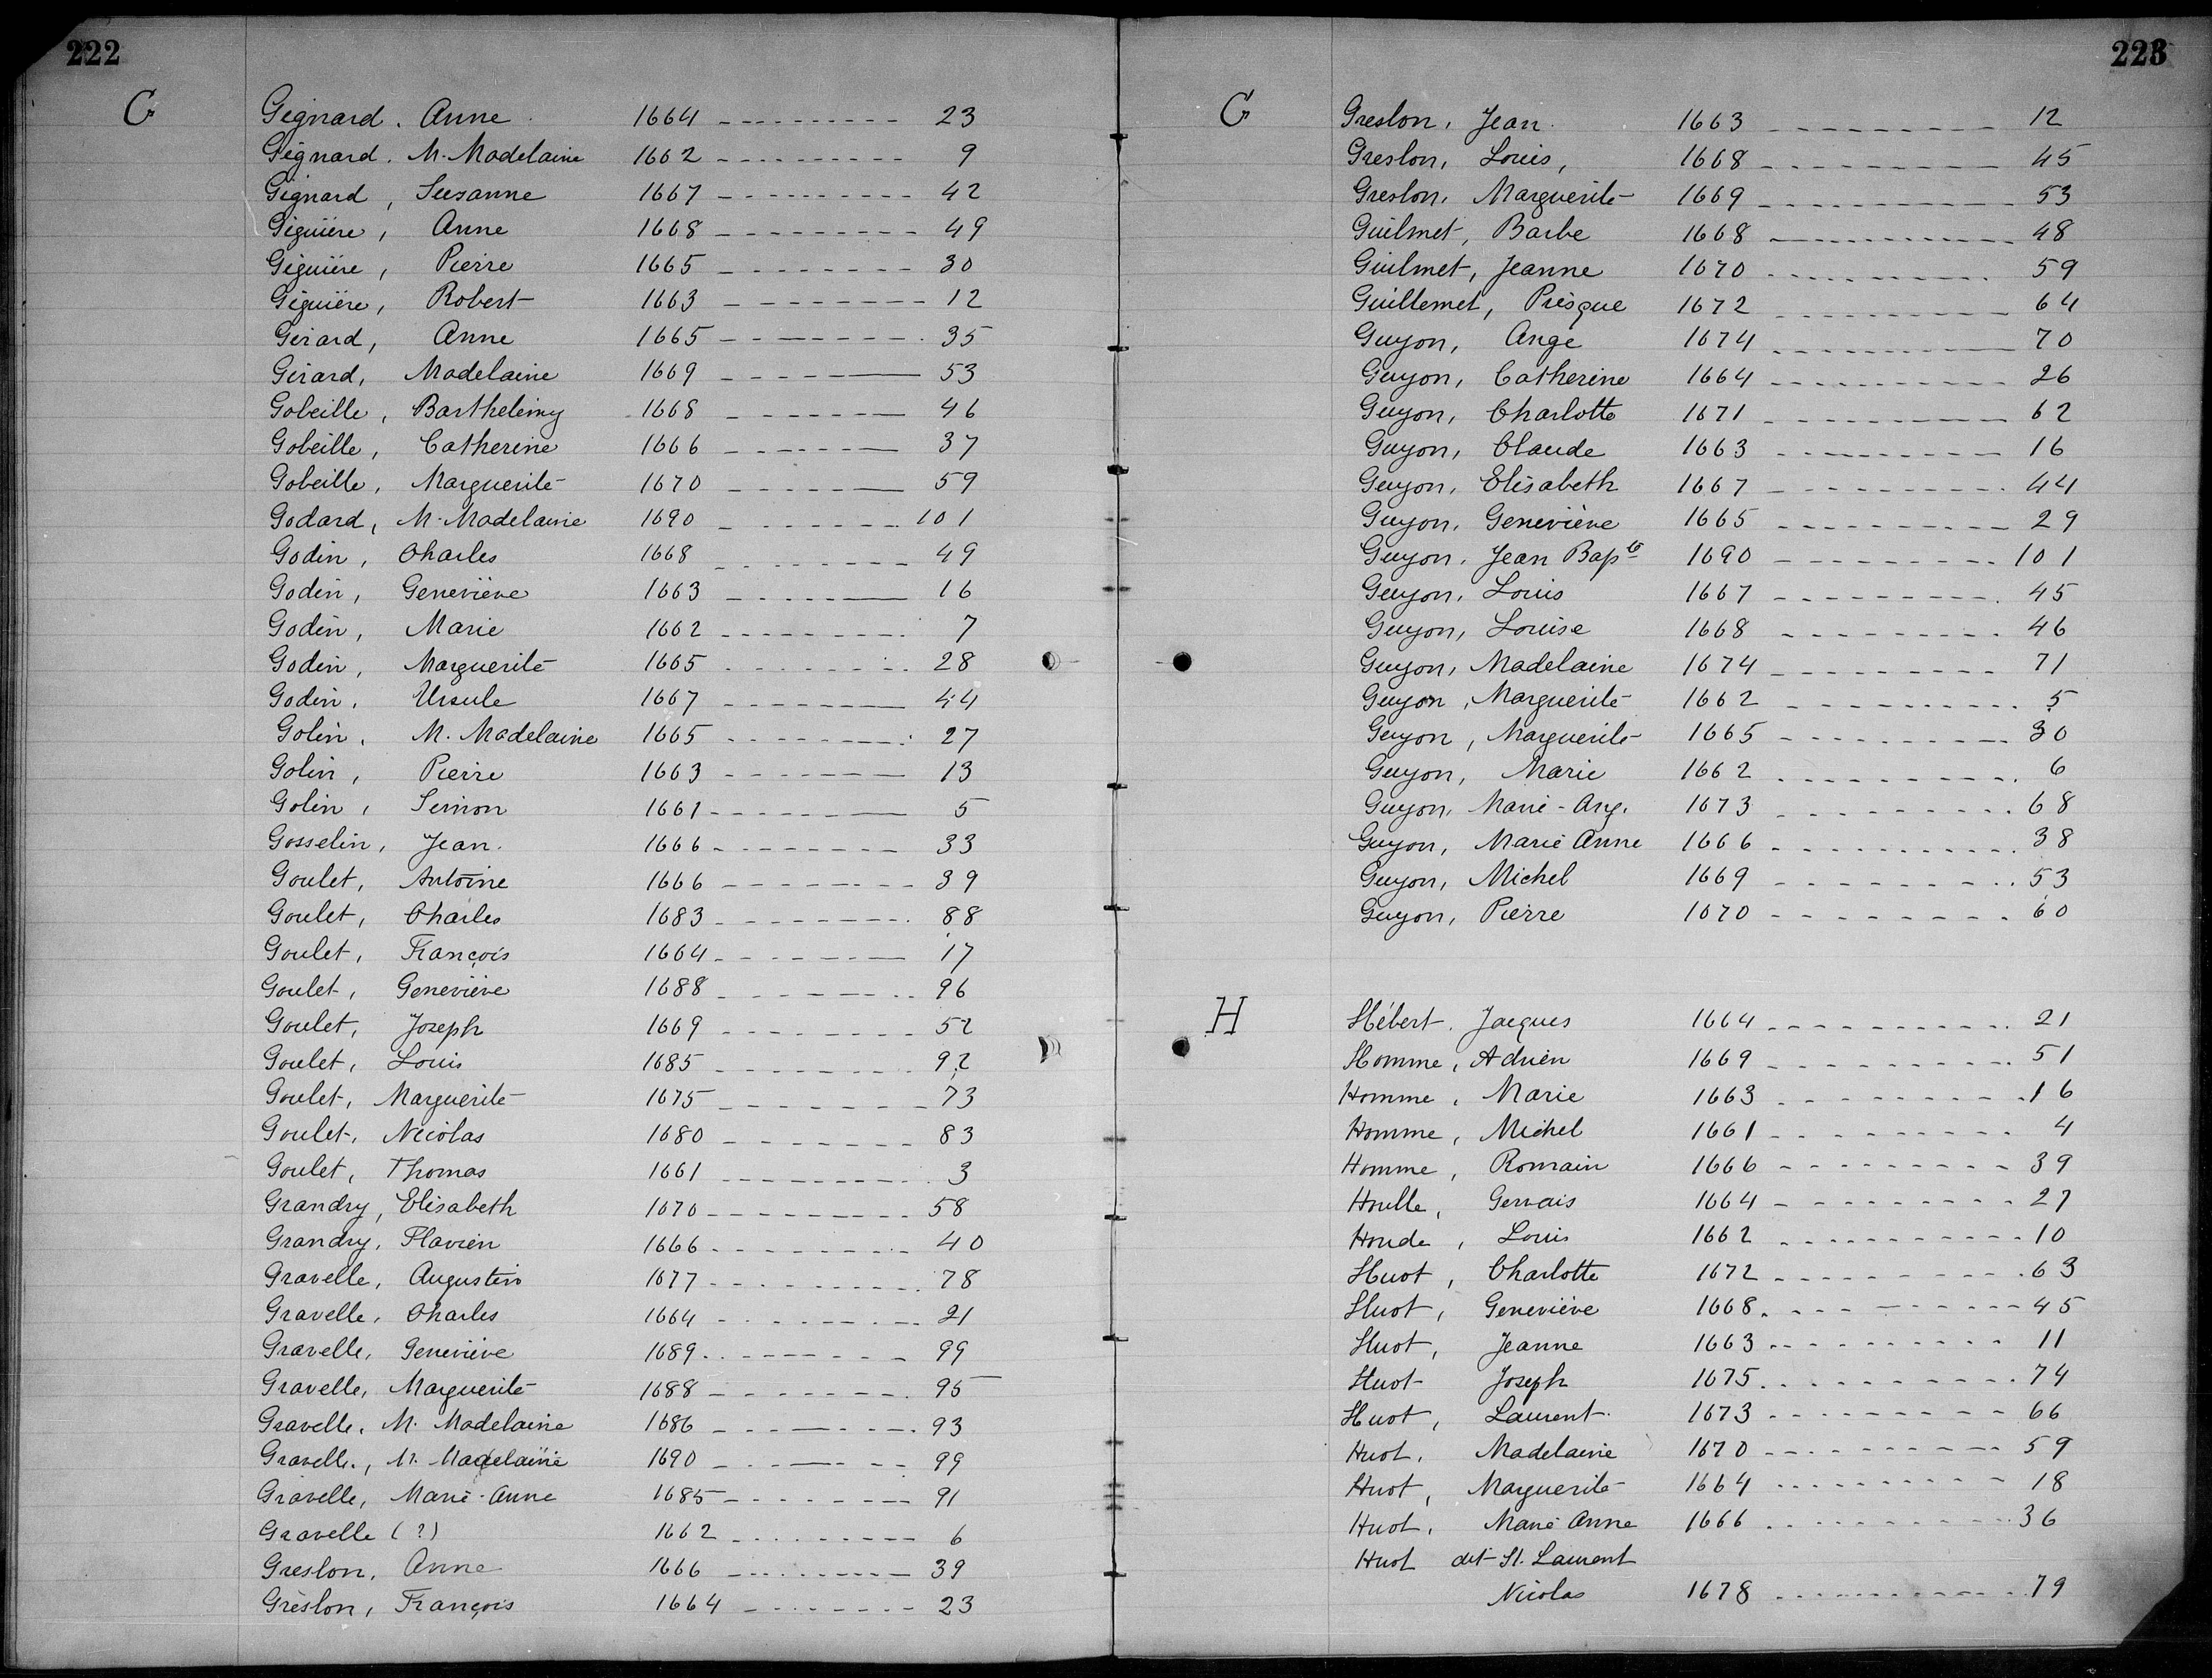 222
G
Gignard. Anne 1664 ---------- 23
Gignard. M. Madelaine 1662 ---------- 9
Gignard, Suzanne 1667 ---------- 42
Giguière, Anne 1668 ---------- 49
Giguière, Pierre 1665 ---------- 30
Giguière, Robert 1663 ---------- 12
Girard, Anne 1665 ---------- 35
Girard, Madelaine 1669 ---------- 53
Gobeille, Barthelémy 1668 ---------- 46
Gobeille, Catherine 1666 ---------- 37
Gobeille, Marguerite 1670 ---------- 59
Godard, M. Madelaine 1690 ---------- 101
Godin, Charles 1668 ---------- 49
Godin, Geneviève 1663 ---------- 16
Godin, Marie 1662 ---------- 7
Godin, Marguerite 1665 ---------- 28
Godin, Ursule 1667 ---------- 44
Golin, M. Madelaine 1665 ---------- 27
Golin, Pierre 1663 ---------- 13
Golin, Simon 1661 ---------- 5
Gosselin, Jean. 1666 ---------- 33
Goulet, Antoine 1666 ---------- 39
Goulet, Charles 1683 ---------- 88
Goulet, François 1664 ---------- 17
Goulet, Geneviève 1688 ---------- 96
Goulet, Joseph 1669 ---------- 52
Goulet, Louis 1685 ---------- 92
Goulet, Marguerite 1675 ---------- 73
Goulet, Nicolas 1680 ---------- 83
Goulet, Thomas 1661 ---------- 3
Grandry, Elisabeth 1670 ---------- 58
Grandry, Flavien 1666 ---------- 40
Gravelle, Augustin 1677 ---------- 78
Gravelle, Charles 1664 ---------- 21
Gravelle, Geneviève 1689 ---------- 99
Gravelle, Marguerite 1688 ---------- 95
Gravelle, M. Madelaine 1686 ---------- 93
Gravelle, M. Madelaine 1690 ---------- 99
Gravelle, Marie-Anne 1685 ---------- 91
Gravelle (?) 1662 ---------- 6
Greslon, Anne 1666 ---------- 39
Greslon, François 1664 ---------- 23
223
G
Greslon, Jean. 1663 ---------- 12
Greslon, Louis, 1668 ---------- 45
Greslon, Marguerite 1669 ---------- 53
Guilmet, Barbe 1668 ---------- 48
Guilmet, Jeanne 1670 ---------- 59
Guillemet, Prisque 1672 ---------- 64
Guyon, Ange 1674 ---------- 70
Guyon, Catherine 1664 ---------- 26
Guyon, Charlotte 1671 ---------- 62
Guyon, Claude 1663 ---------- 16
Guyon, Elisabeth 1667 ---------- 44
Guyon, Geneviève 1665 ---------- 29
Guyon, Jean Bapte 1690 ---------- 101
Guyon, Louis 1667 ---------- 45
Guyon, Louise 1668 ---------- 46
Guyon, Madelaine 1674 ---------- 71
Guyon, Marguerite 1662 ---------- 5
Guyon, Marguerite 1665 ---------- 30
Guyon, Marie 1662 ---------- 6
Guyon, Marie-Ang. 1673 ---------- 68
Guyon, Marie Anne 1666 ---------- 38
Guyon, Michel 1669 ---------- 53
Guyon, Pierre 1670 ---------- 60
H
Hébert. Jacques 1664 ---------- 21
Homme, Adrien 1669 ---------- 51
Homme, Marie 1663 ---------- 16
Homme, Michel 1661 ---------- 4
Homme, Romain 1666 ---------- 39
Houlle, Gervais 1664 ---------- 27
Houde, Louis 1662 ---------- 10
Huot, Charlotte 1672 ---------- 63
Huot, Geneviève 1668 ---------- 45
Huot, Jeanne 1663 ---------- 11
Huot Joseph 1675 ---------- 74
Huot, Laurent 1673 ---------- 66
Huot, Madelaine 1670 ---------- 59
Huot, Marguerite 1664 ---------- 18
Huot, Marie Anne 1666 ---------- 36
Huot dit St. Laurent
Nicolas 1678 ---------- 79